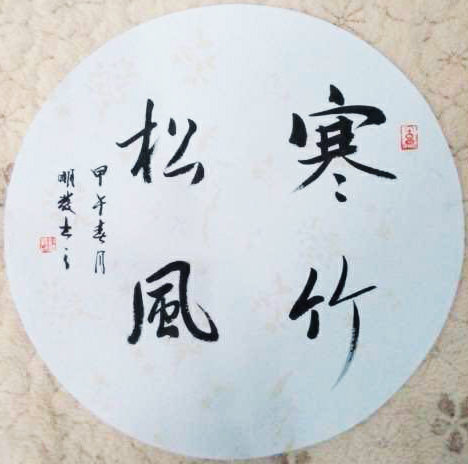 寒竹
松風
甲午春月
明发书之